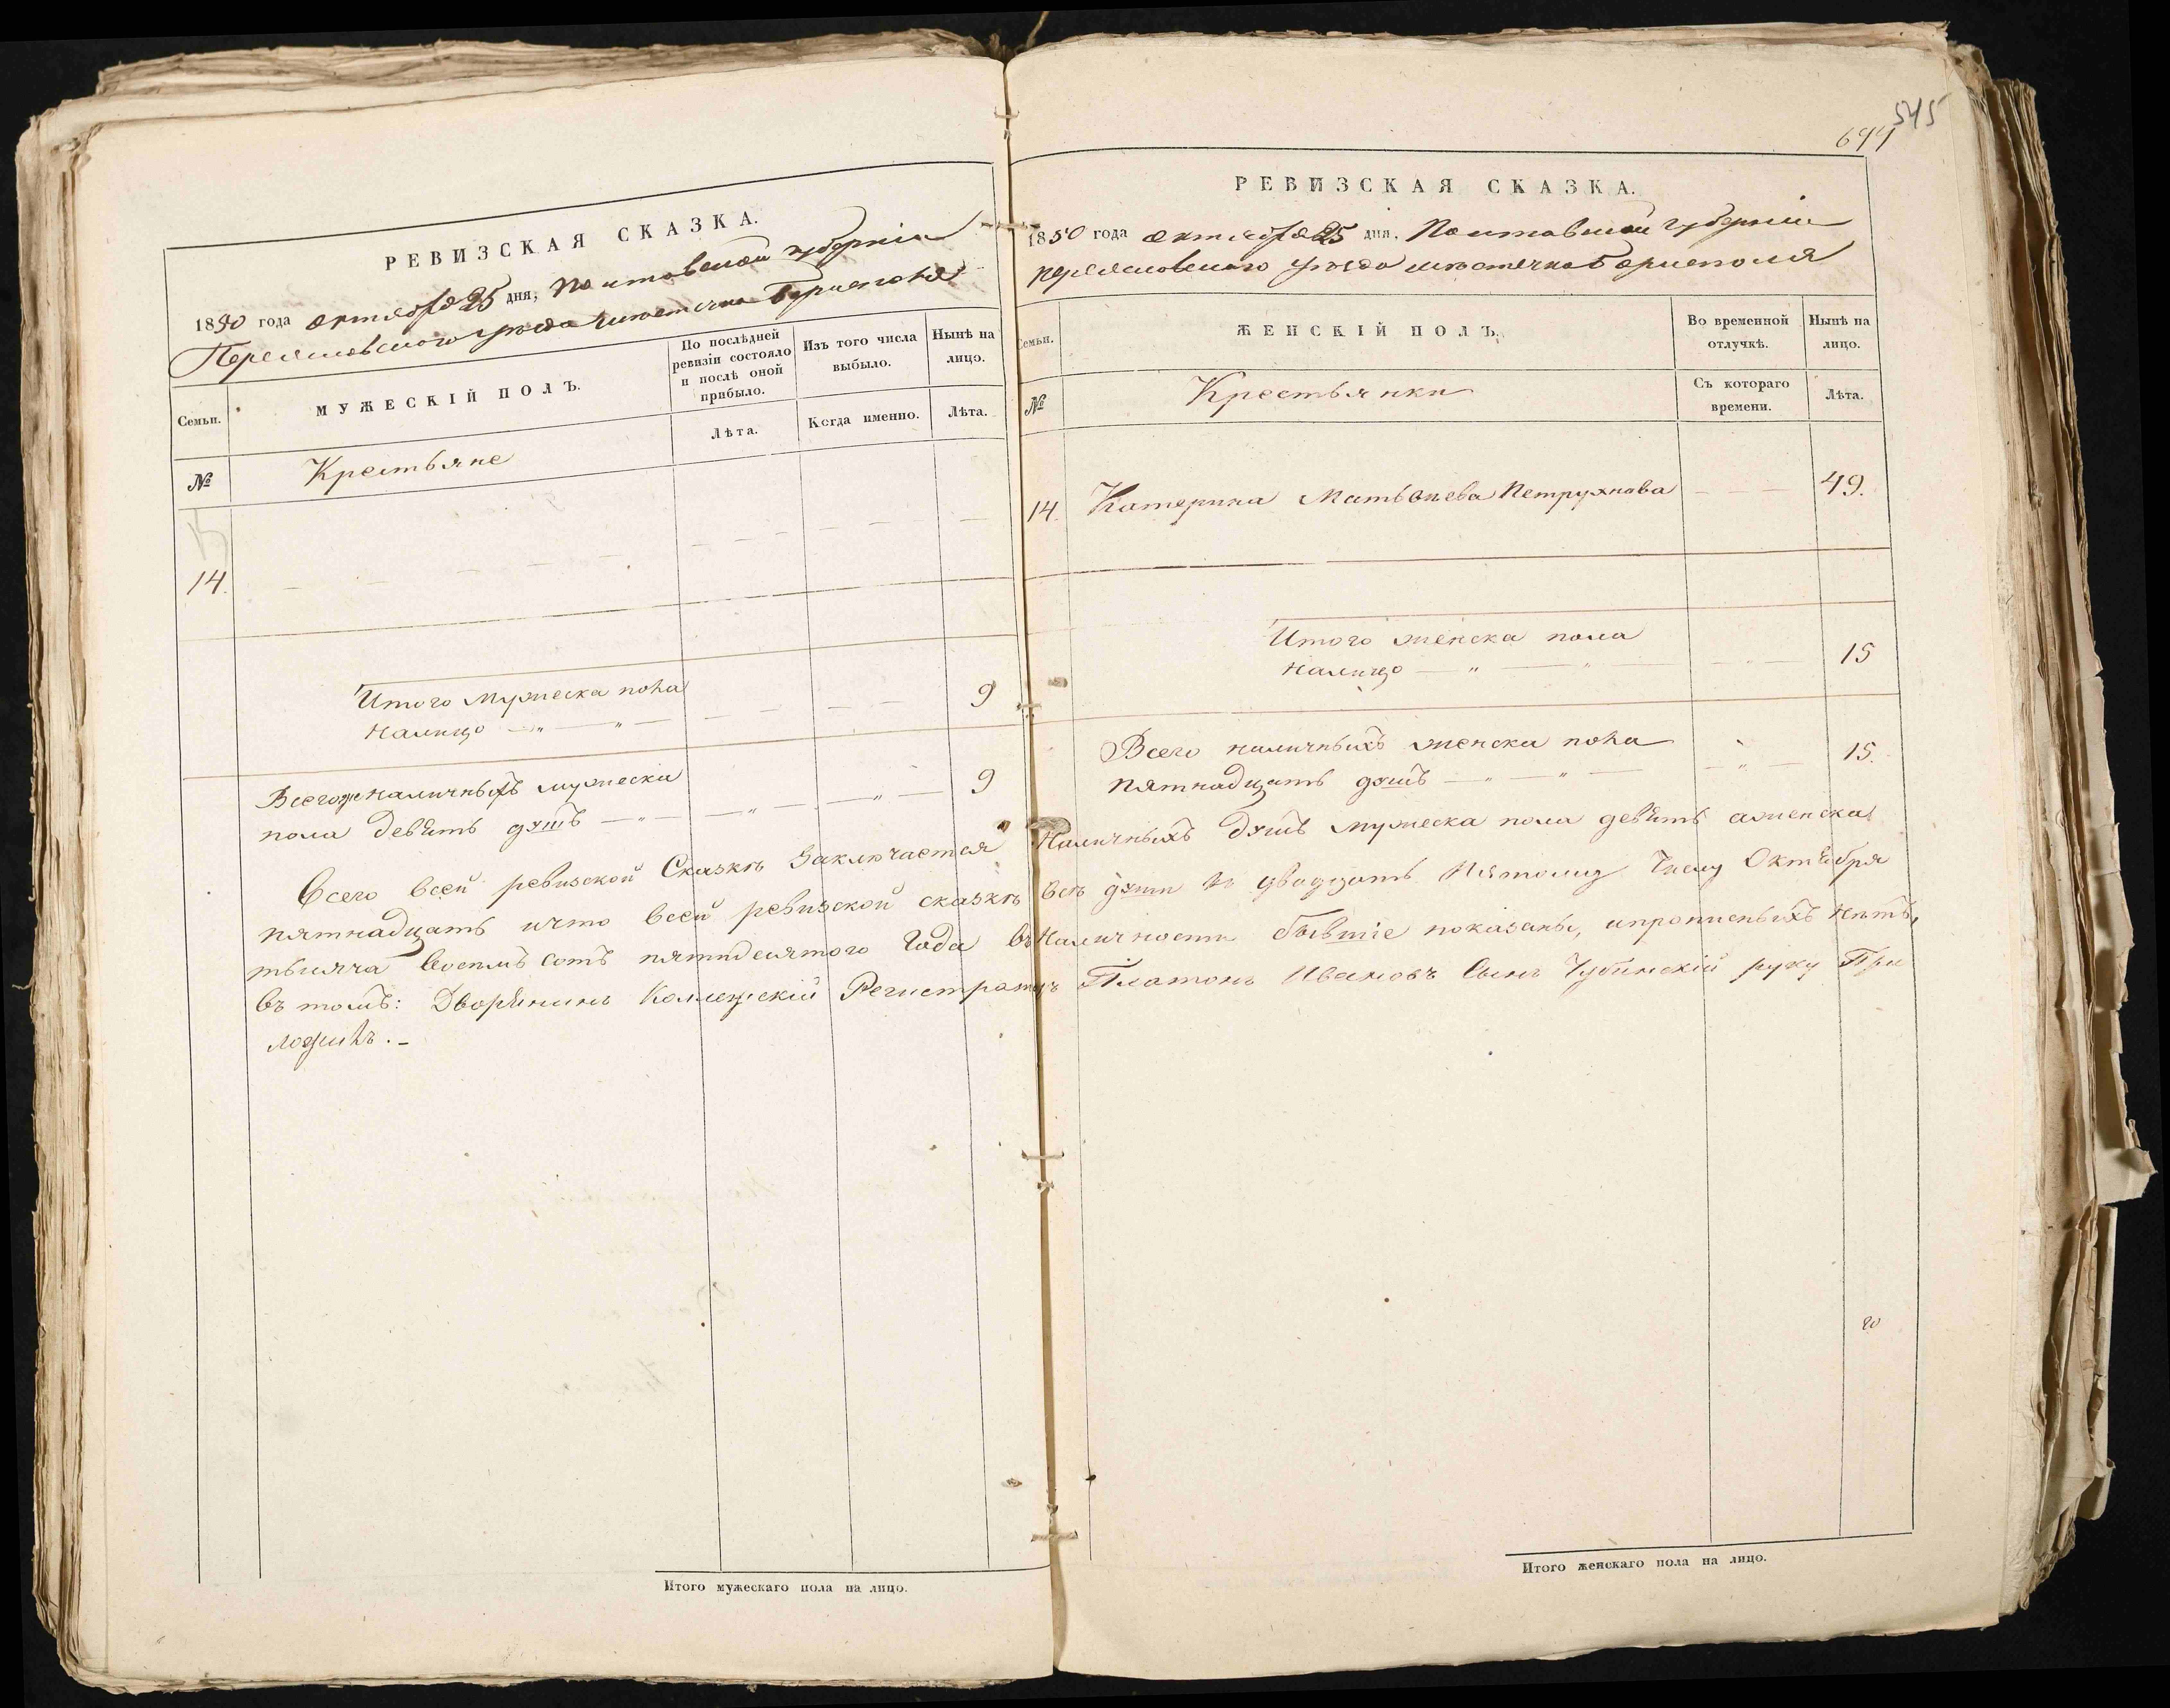 РЕВИЗСКАЯ СКАЗКА.
1850 года октября 25 дня, Полтавской губернiи
Переяловского уѣзда мѣстечка Борисполя
Семьи.
МУЖЕСКІЙ ПОЛЪ.
По послѣдней ревизіи состояло и послѣ оной прибыло.
Изъ того числа выбыло.
Нынѣ на лицо.
Лѣта.
Когда именно.
Лѣта.
№
Крестьяне
14.
Итого Мужеска пола
налицо — „ — „ — 9
Всегоже наличныхъ мужеска
пола девять душъ — „ — 9
Всего всей ревизской Сказкѣ Заключается
пятнадцать ичто всей ревизской сказкѣ
тысяча восемъ сотъ пятидесятого Года въ
въ томъ: Дворянинъ Коллежскій Регистраторъ
ложилъ. –
Итого мужескаго пола на лицо.
545
694
РЕВИЗСКАЯ СКАЗКА.
1850 года октября 25 дня, Полтавской губернiи
переяловского уѣзда мѣстечка Борисполя
Семьи.
ЖЕНСКІЙ ПОЛЪ.
Во временной отлучкѣ.
Нынѣ на лицо.
№
Крестьянки
Съ котораго времени.
Лѣта.
14. Катерина Матвѣева Петрухнова 49.
Итого женска пола
налицо — „ — „ — 15
Всего наличныхъ женска пола
пятнадцать душъ — „ — „ — 15.
Наличныхъ душъ мужеска пола девять аженска
всѣ души къ двадцать Пятому Числу Октября
Наличности бывшіе показаны, ипрописныхъ нѣтъ,
Платонъ Ивановъ Сынъ Чубинскій руку При
Итого женскаго пола на лицо.